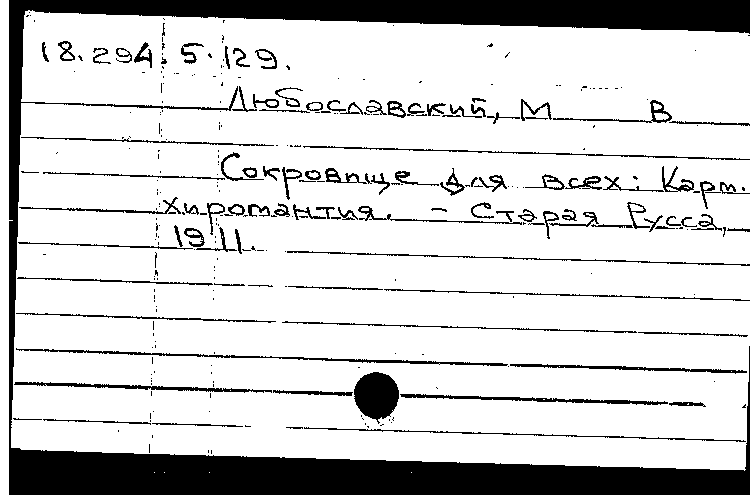 18.294.5.129.
Любославский, М В
Сокровище для всех: Карт.
хиромантия. - Старая Русса,
1911.